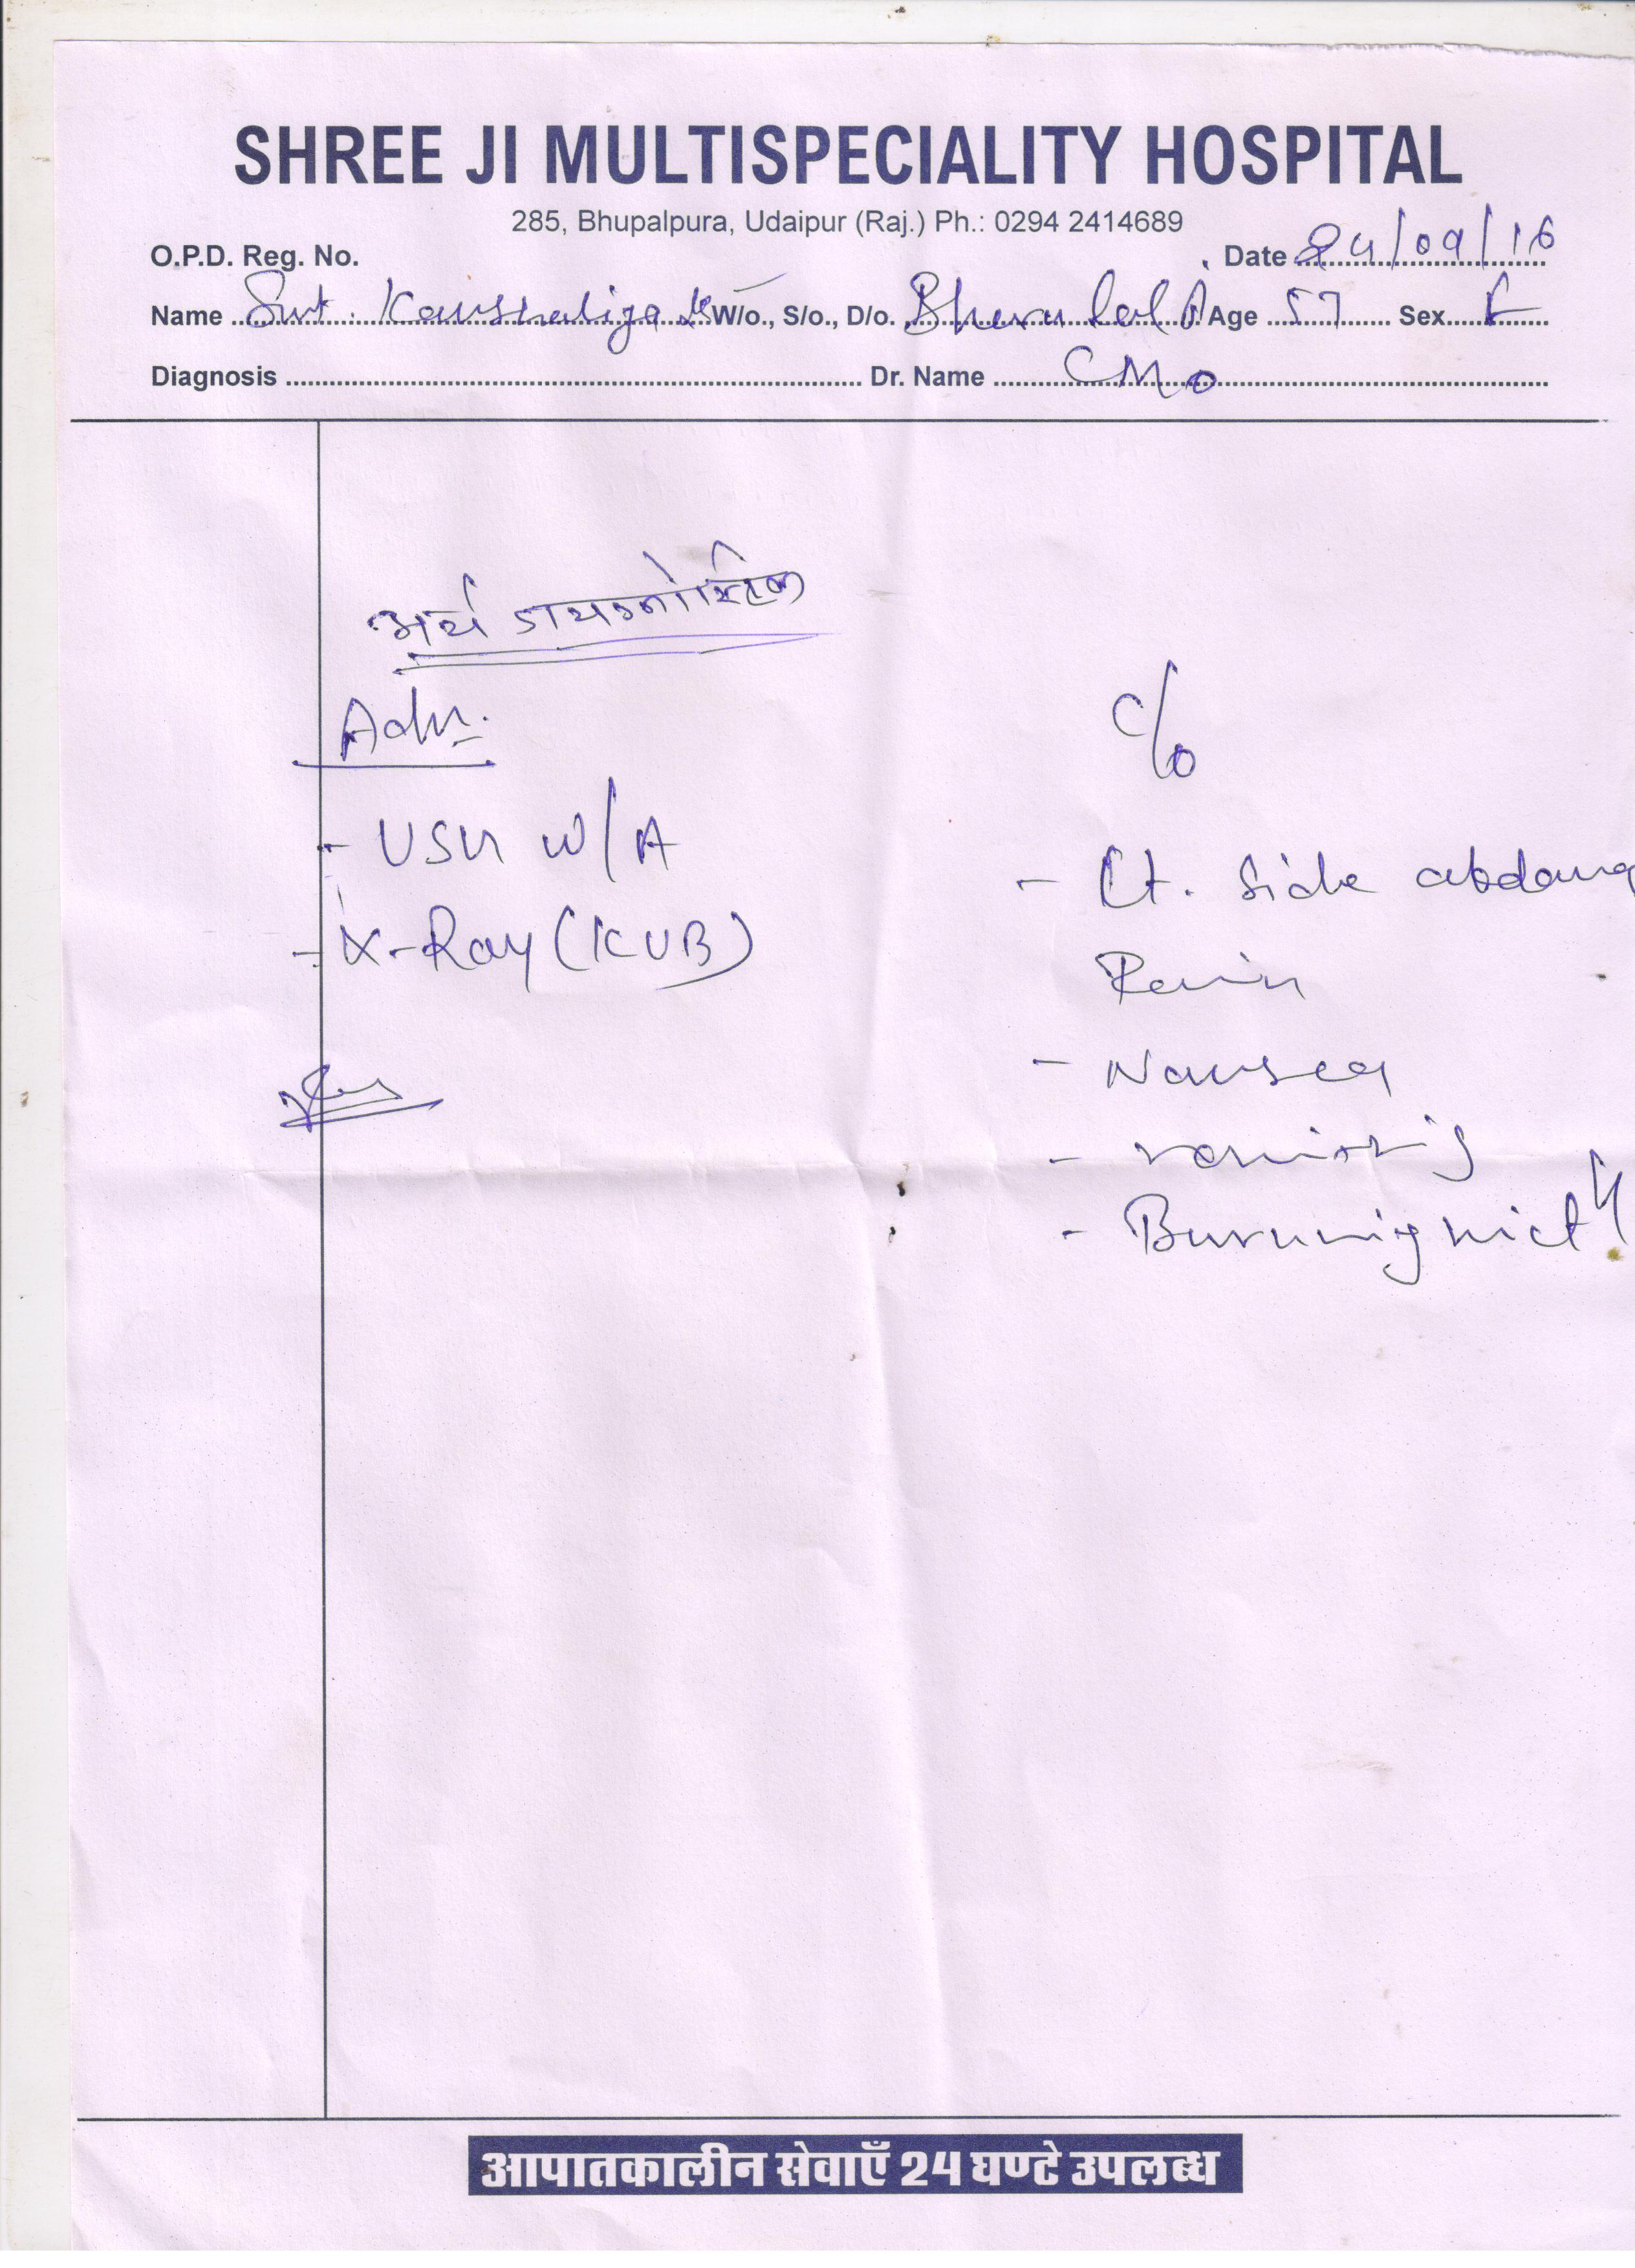 SHREE JI MULTISPECIALITY HOSPITAL
285, Bhupalpura, Udaipur (Raj.) Ph.: 0294 2414689
O.P.D. Reg. No. Date 24/09/16
Name Smt. Kaushaliya W/o., S/o., D/o. Bheru lal Age 57 Sex F
Diagnosis Dr. Name CMO
अर्थ डायग्नोस्टिक
Adv.
- USG W/A
- X-Ray (KUB)
C/o
- Lt. Side
Pain
- Nausea
- vomiting
- Burning mict
आपातकालीन सेवाएँ 24 घण्टे उपलब्ध